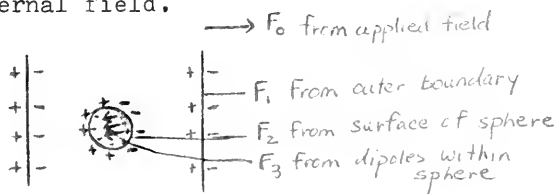 ernal field.
F₀ from applied field
F₁ from outer boundary
F₂ from surface of sphere
F₃ from dipoles within
sphere